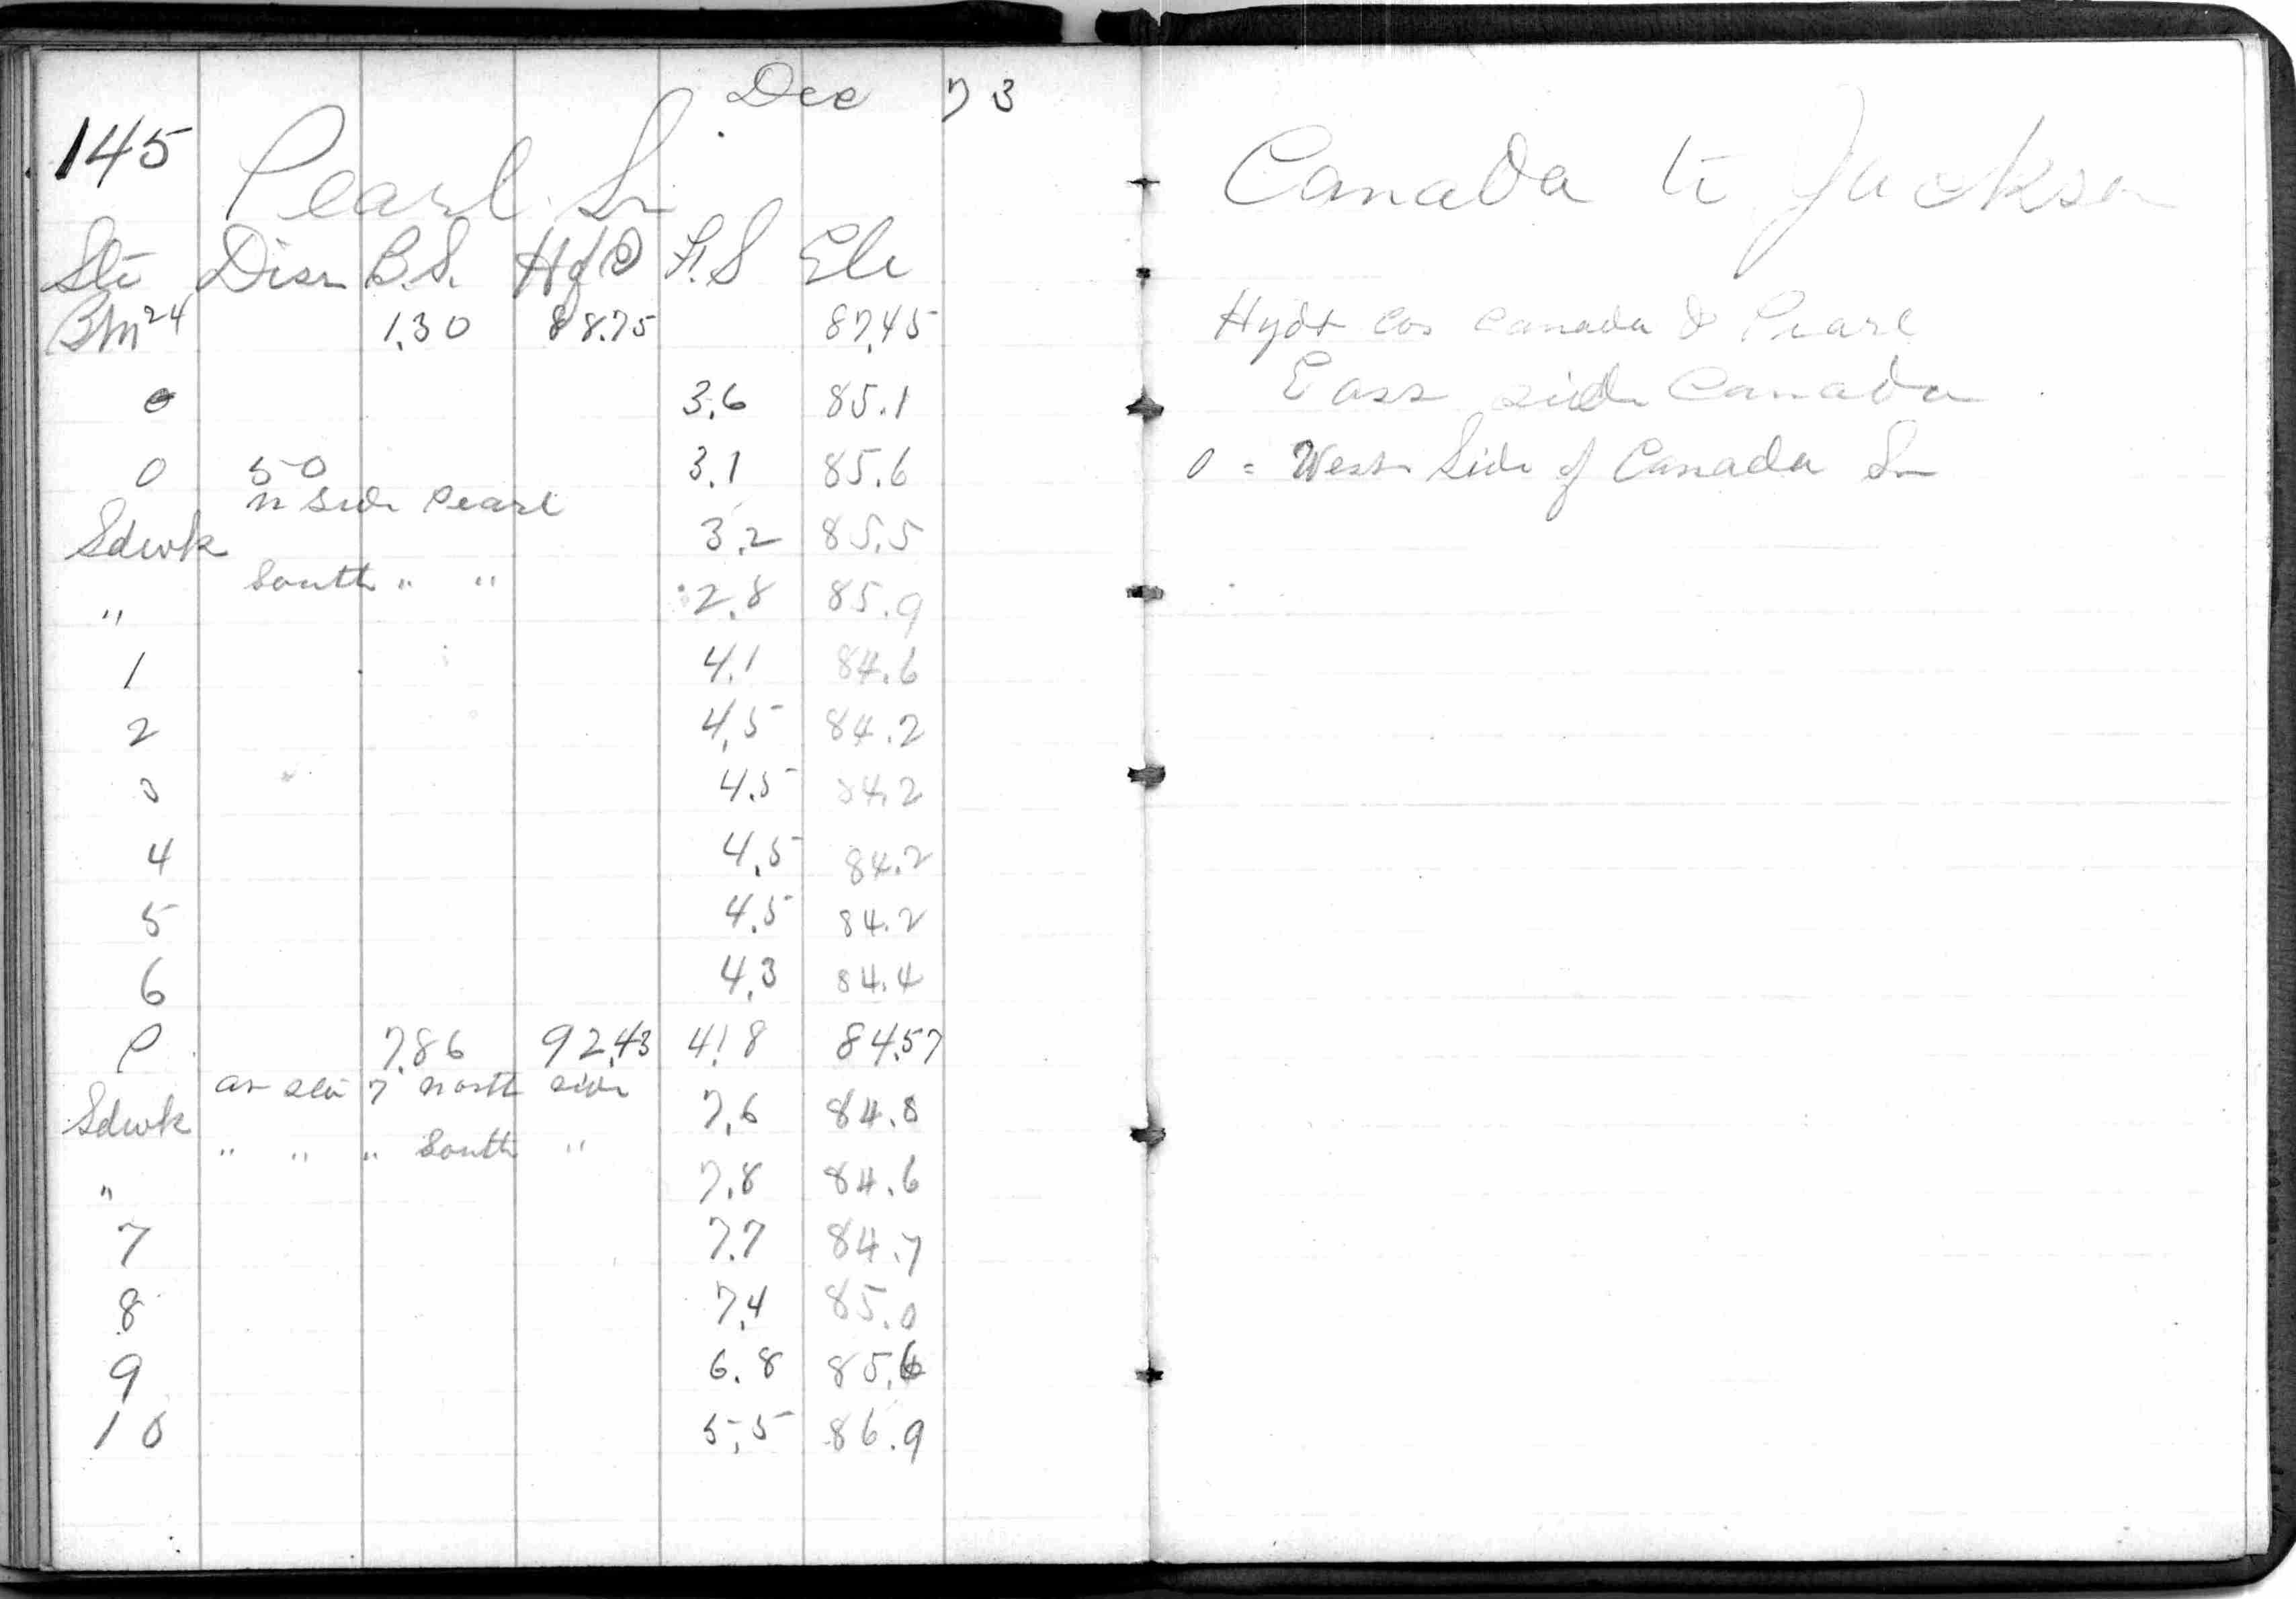 Dec 73
145 Pearl St
Sta Dist B.S. H of @ F.S Ele
BM 24 1.30 88.75 87.45
0 3.6 85.1
0 50 3.1 85.6
n side Pearl
Sdwk 3.2 85.5
South " "
" 2.8 85.9
1 4.1 84.6
2 4.5 84.2
3 4.5 84.2
4 4.5 84.2
5 4.5 84.2
6 4.3 84.4
P 7.86 92.43 4.18 84.57
at sta 7 north side
Sdwk 7.6 84.8
" " " South "
" 7.8 84.6
7 7.7 84.7
8 7.4 85.0
9 6.8 85.6
10 5.5 86.9
Canada to Jackson
Hydt Cor Canada & Pearl
East side Canada
0 = West Side of Canada St